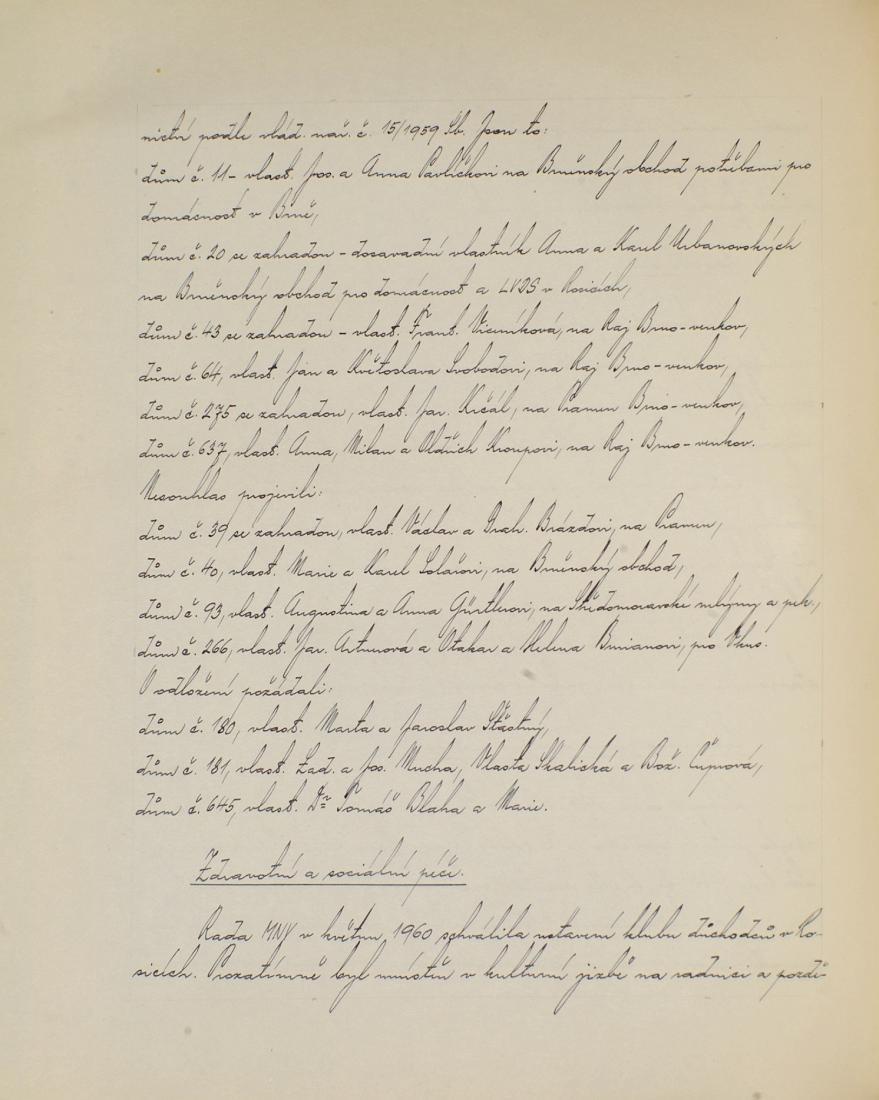 nictví podle vlád. nař. č. 15/1959 Sb. Jsou to:
dům č. 11 - vlast. Jos. a Anna Pavlíčkovi na Brněnský obchod potřebami pro
domácnost v Brně,
dům č. 20 se zahradou - dosavadní vlastník Anna a Karel Urbanovských
na Brněnský obchod pro domácnost a LVDS v Rosicích,
dům č. 43 se zahradou - vlast. Frant. Viceníková, na Raj Brno-venkov,
dům č. 64, vlast. Jan a Květoslava Svobodovi, na Raj Brno-venkov,
dům č. 275 se zahradou, vlast. Jar. Kišál, na Pramen Brno-venkov,
dům č. 637, vlast. Anna, Milan a Oldřich Kroupovi, na Raj Brno-venkov.
Nesouhlas projevili:
dům č. 39 se zahradou, vlast. Václav a Drah. Brázdovi, na Pramen,
dům č. 40, vlast. Marie a Karel Solařovi, na Brněnský obchod,
dům č. 93, vlast. Augustina a Anna Gürtlerovi, na Středomoravské mlýny a pek.,
dům č. 266, vlast. Jar. Arturová a Otakar a Helena Burianovi, pro Vkus.
O odložení požádali:
dům č. 180, vlast. Marta a Jaroslav Šťastný,
dům č. 181, vlast. Lad. a Jos. Mucha, Vlasta Skalická a Bož. Čuprová,
dům č. 645, vlast. Dr Tomáš Blaha a Marie.
Zdravotní a sociální péče.
Rada MNV v květnu 1960 schválila ustavení klubu důchodců v Ro-
sicích. Prozatímně byl umístěn v kulturní jizbě na radnici a pozdě-